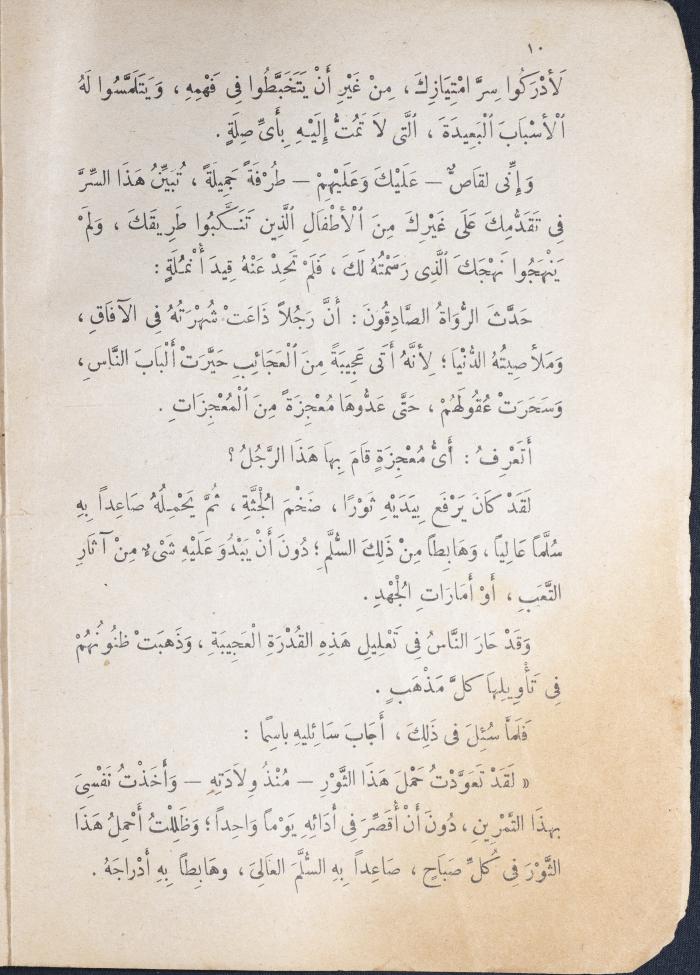 ١٠
لَأَدْرَكُوا سِرَّ امْتِيَازِكَ ، مِنْ غَيْرِ أَنْ يَتَخَبَّطُوا فِى فَهْمِهِ ، وَيَتَلَمَّسُوا لَهُ
ٱلْأَسْبَابَ ٱلْبَعِيدَةَ ، ٱلَّتِى لَا تَمُتُّ إِلَيْهِ بِأَىِّ صِلَةٍ .
وَإِنِّى لقَاصٌّ — عَلَيْكَ وَعَلَيْهِمْ — طُرْفَةً جَمِيلَةً ، تُبَيِّنُ هَذَا السِّرَّ
فِى تَقَدُّمِكَ عَلَى غَيْرِكَ مِنَ ٱلْأَطْفَالِ ٱلَّذِين تَنَكَّبُوا طَرِيقَكَ ، وَلَمْ
يَنْهَجُوا نَهْجَكَ ٱلَّذِى رَسَمْتُهُ لَكَ ، فَلَمْ تَحِدْ عَنْهُ قِيدَ أُنْمُلَةٍ :
حَدَّثَ الرُّوَاةُ الصَّادِقُونَ : أَنَّ رَجُلاً ذَاعَتْ شُهْرَتُهُ فِى الآفَاقِ ،
وَمَلأَ صِيتُهُ الدُّنْيَا ؛ لِأَنَّهُ أَتَى عَجِيبَةً مِنَ ٱلْعَجَائِبِ حَيَّرَتْ أَلْبَابَ النَّاسِ ،
وَسَحَرَتْ عُقُولَهُمْ ، حَتَّى عَدُّوهَا مُعْجِزَةً مِنَ ٱلْمُعْجِزَاتِ .
أَتَعْرِفُ : أَىَّ مُعْجِزَةٍ قَامَ بِهَا هَذَا الرَّجُلُ ؟
لَقَدْ كَانَ يَرْفَع بِيَدَيْهِ ثَوْرًا ، ضَخْمَ الْجُثَّةِ ، ثُمَّ يَحْمِلُهُ صَاعِداً بِهِ
سُلَّماً عَالِياً ، وَهَابِطاً مِنْ ذَلِكَ السُّلَّمِ ؛ دُونَ أَنْ يَبْدُوَ عَلَيْهِ شَىْءٌ مِنْ آثَارِ
التَّعَبِ ، أَوْ أَمَارَاتِ الْجُهْدِ .
وَقَدْ حَارَ النَّاسُ فِى تَعْلِيلِ هَذِهِ القُدْرَةِ الْعَجِيبَةِ ، وَذَهبَتْ ظنُونُهُمْ
فِى تَأْوِيلِهَا كلَّ مَذْهَبٍ .
فَلَمَّا سُئِلَ فِى ذَلِكَ ، أَجَابَ سَائِليهِ باسِمًا :
« لقَدْ تَعَوَّدْتُ حَمْلَ هَذَا الثَّوْرِ — مُنْذُ وِلَادَتِهِ — وَأَخَذْتُ نَفْسِىَ
بِهذَا التَّمْرِينِ ، دُونَ أَنْ أُقَصِّرَ فِى أَدَائِهِ يَوْماً وَاحِداً ؛ وَظَلِلْتُ أَحْمِلُ هَذَا
الثَّوْرَ فِى كُلِّ صَبَاحٍ ، صَاعِداً بِهِ السُّلَّمَ العَالِىَ ، وهَابِطاً بِهِ أَدْرَاجَهُ .